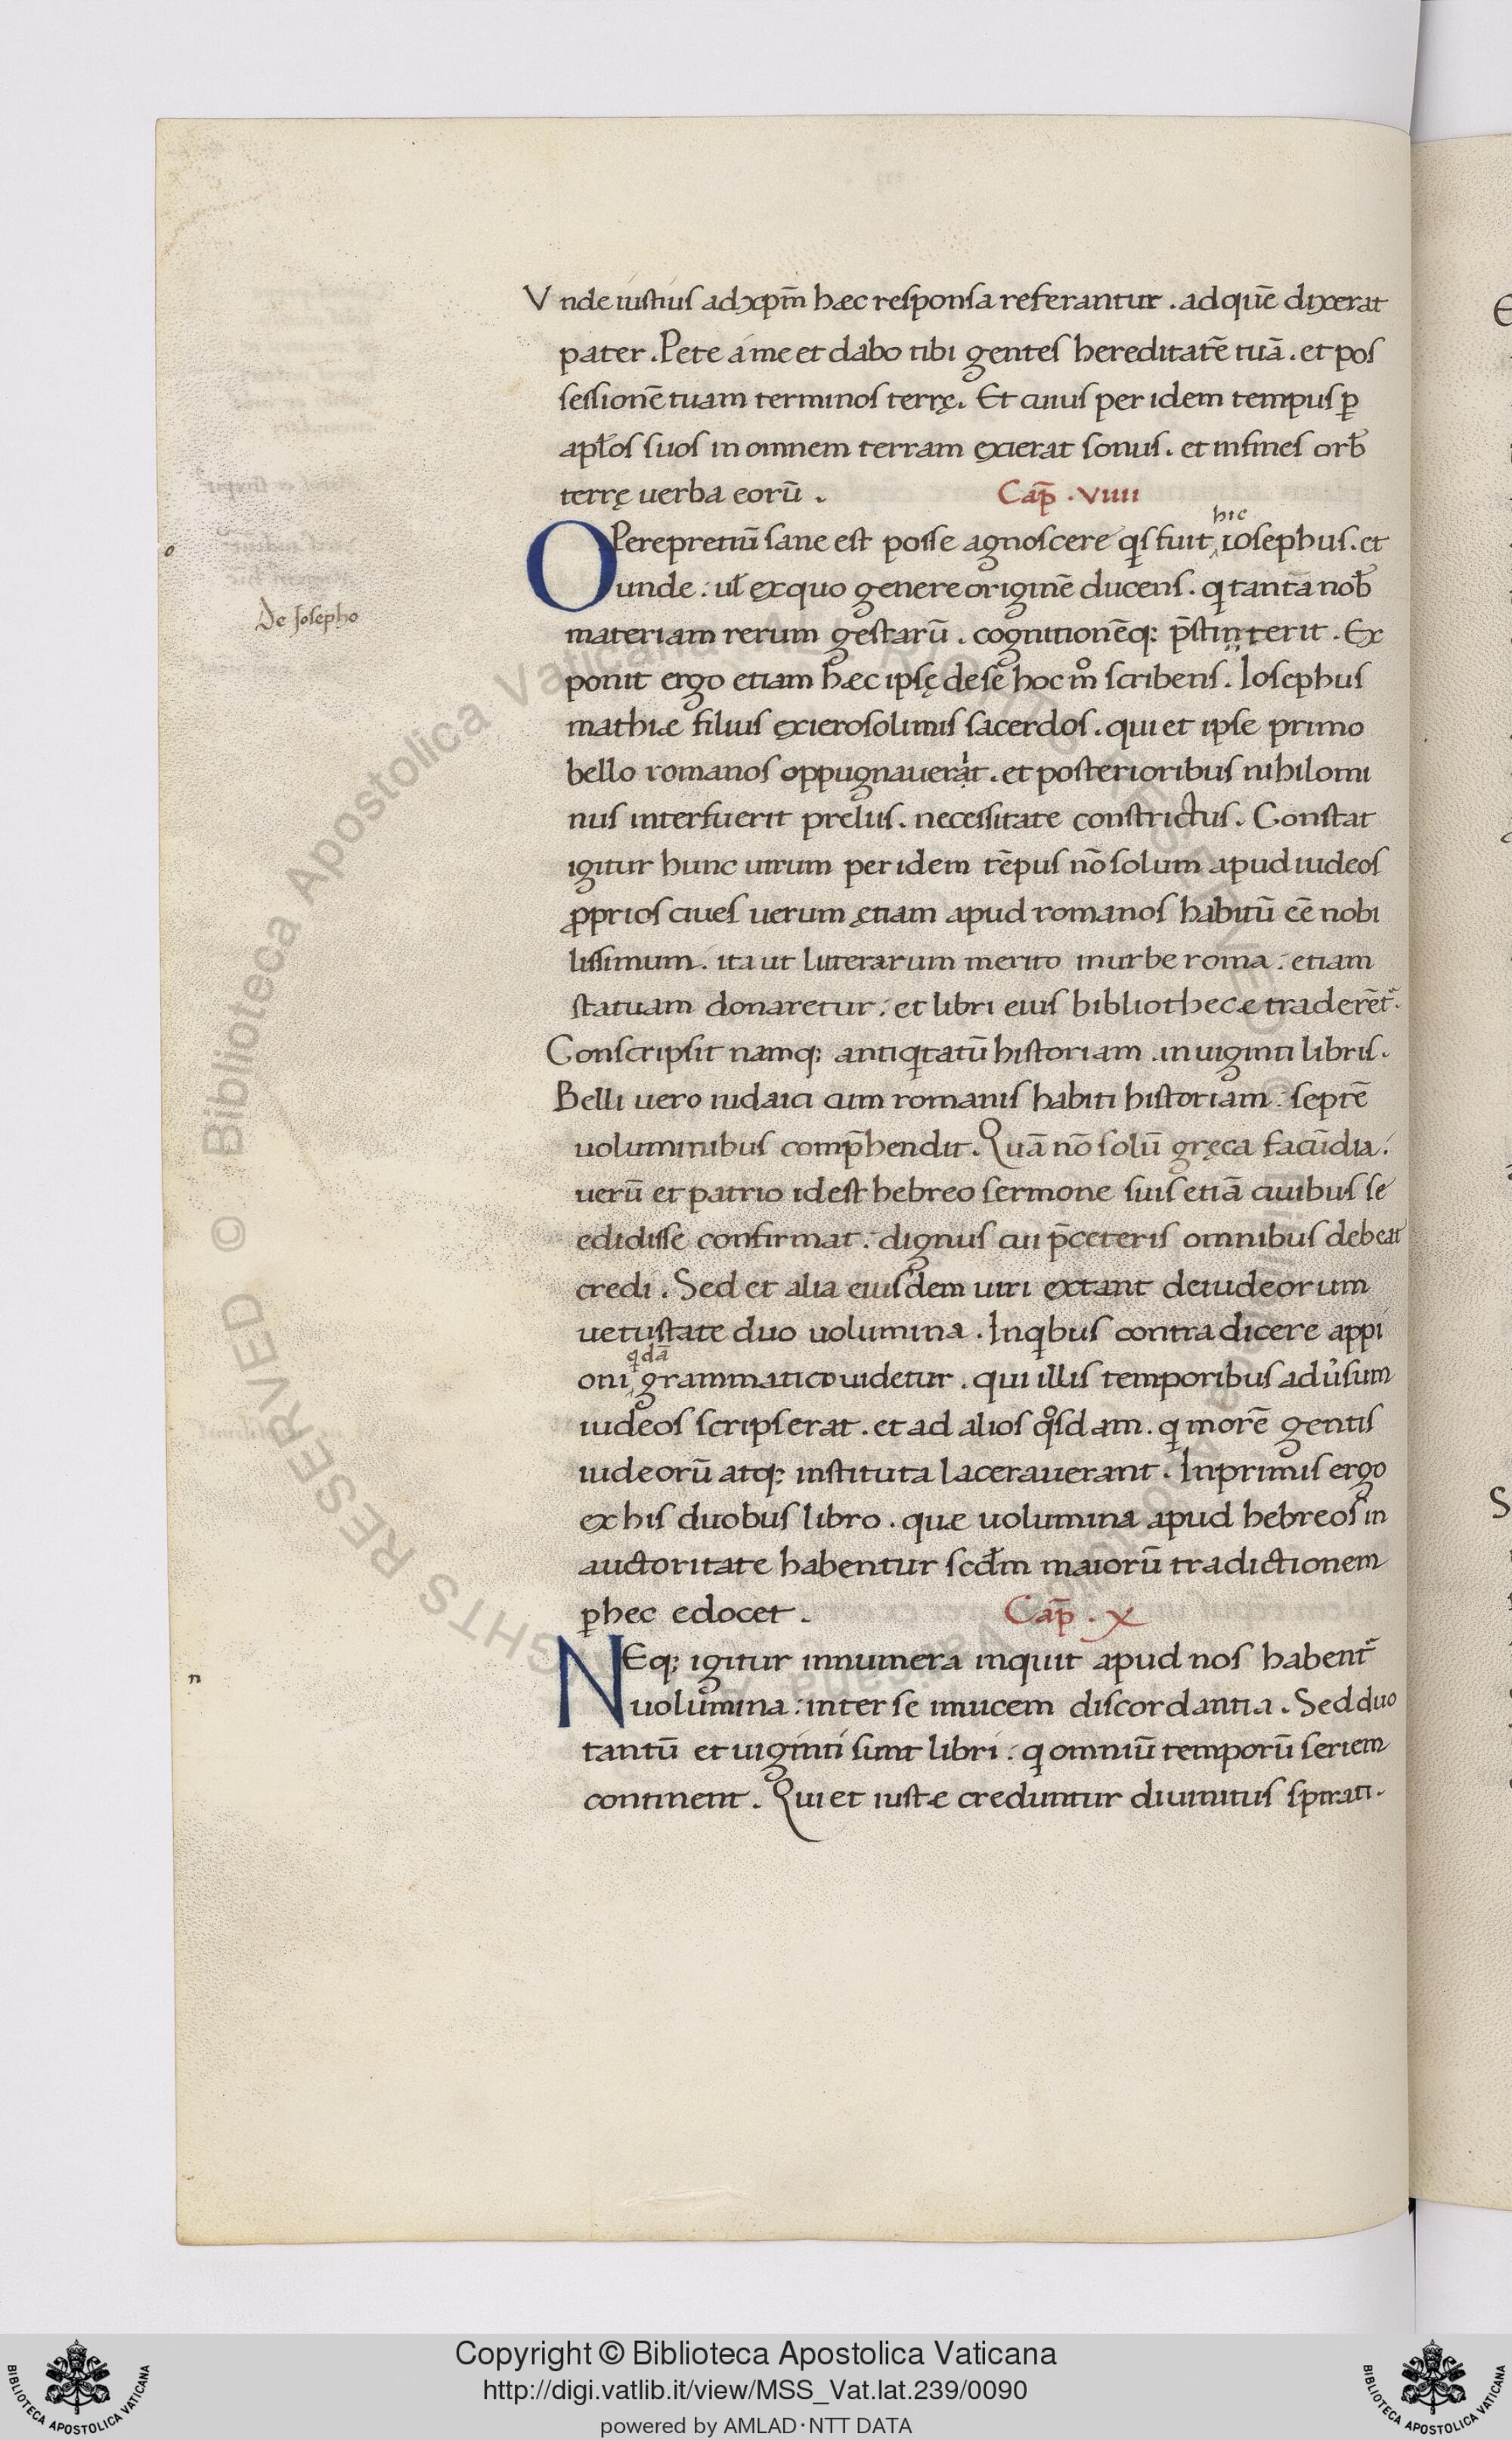 Vnde iustius ad xp̄m hæc responsa referantur . ad quē dixerat
pater . Pete a me et dabo tibi gentes hereditatē tuā . et pos
sessionē tuam terminos terrę . Et cuius per idem tempus ꝑ
apl̄os suos in omnem terram exierat sonus . et in fines orb̄
terrę uerba eorū .
Cap̄ . VIIII
hic
OPerepretiū sane est posse agnoscere qͥs fuit iosephus . et
unde : ul̄ ex quo genere originē ducens . qͥ tantā nob̄
De Iosepho
materiam rerum gestarū . cognitionēq; p̄stinterit . Ex
ponit ergo etiam hæc ipsę de se hoc mͦ scribens . Iosephus
mathiæ filius ex ierosolimis sacerdos . qui et ipse primo
bello romanos oppugnauerat . et posterioribus nihilomi
nus interfuerit preliis . necessitate constrictus . Constat
igitur hunc uirum per idem tēpus nō solum apud iudeos
ꝓprios ciues uerum ętiam apud romanos habitū eē nobi
lissimum . ita ut litterarum merito in urbe roma : etiam
statuam donaretur : et libri eius bibliothecæ traderēt᷑ .
Conscripsit namq; antiqͥtatū historiam . in uiginti libris .
Belli uero iudaici cum romanis habiti historiam : septē
uoluminibus comp̄hendit . Quā nō solū gręca facūdia :
uerū et patrio id est hebreo sermone suis etiā ciuibus se
edidisse confirmat : dignus cui p̄ceteris omnibus debeat
credi . Sed et alia eiusdem uiri extant de iudeorum
uetustate duo uolumina . In qͥbus contra dicere appi
qͥdā
oni grammatico uidetur . qui illis temporibus adu̓sum
iudeos scripserat . et ad alios qͦsdam . qͥ morē gentis
iudeorū atq; instituta lacerauerant . In primis ergo
ex his duobus libro . quæ uolumina apud hebreos in
auctoritate habentur scd̄m maiorū tradictionem
ꝑ hec edocet .
Cap̄ . X
NEq; igitur innumera inquit apud nos habent᷑
n
uolumina : inter se inuicem discordantia . Sed duo
tantū et uiginti sunt libri : qͥ omniū temporū seriem
continent . Qui et iuste creduntur diuinitus spirati .
Copyright © Biblioteca Apostolica Vaticana
http://digi.vatlib.it/view/MSS_Vat.lat.239/0090
powered by AMLAD·NTT DATA